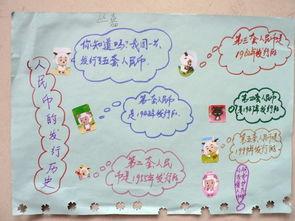 人民币的发行历史
你知道吗?我国一共
发行了五套人民币.
第一套人民币
是1948年发行的.
第二套人民
币是1955年发行的
第三套人民币
是1962年发行的
第四套人民币
是1987年发行的.
第五套人民币是
1999年发行的